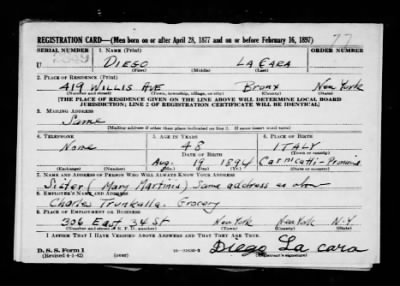 REGISTRATION CARD—(Men born on or after April 28, 1877 and on or before February 16, 1897)
SERIAL NUMBER 1. NAME (Print) ORDER NUMBER
DIEGO LA CARA
(First) (Middle) (Last)
2. PLACE OF RESIDENCE (Print)
419 WILLIS AVE Bronx New York
(Number and street) (Town, township, village, or city) (County) (State)
[THE PLACE OF RESIDENCE GIVEN ON THE LINE ABOVE WILL DETERMINE LOCAL BOARD
JURISDICTION; LINE 2 OF REGISTRATION CERTIFICATE WILL BE IDENTICAL]
3. MAILING ADDRESS
Same
[Mailing address if other than place indicated on line 2. If same insert word same]
4. TELEPHONE 5. AGE IN YEARS 6. PLACE OF BIRTH
None 48 ITALY
DATE OF BIRTH (Town or county)
Aug. 19 1894
(Exchange) (Number) (Mo.) (Day) (Yr.) (State or country)
7. NAME AND ADDRESS OF PERSON WHO WILL ALWAYS KNOW YOUR ADDRESS
Sister (Mary Martinis) Same address as
8. EMPLOYER'S NAME AND ADDRESS
Charles Grocery
9. PLACE OF EMPLOYMENT OR BUSINESS
306 East 34 St New York New York N-Y
(Number and street or R. F. D. number) (Town) (County) (State)
I AFFIRM THAT I HAVE VERIFIED ABOVE ANSWERS AND THAT THEY ARE TRUE.
D. S. S. Form 1
(Revised 4-1-42) (over)
Diego La cara
(Registrant's signature)